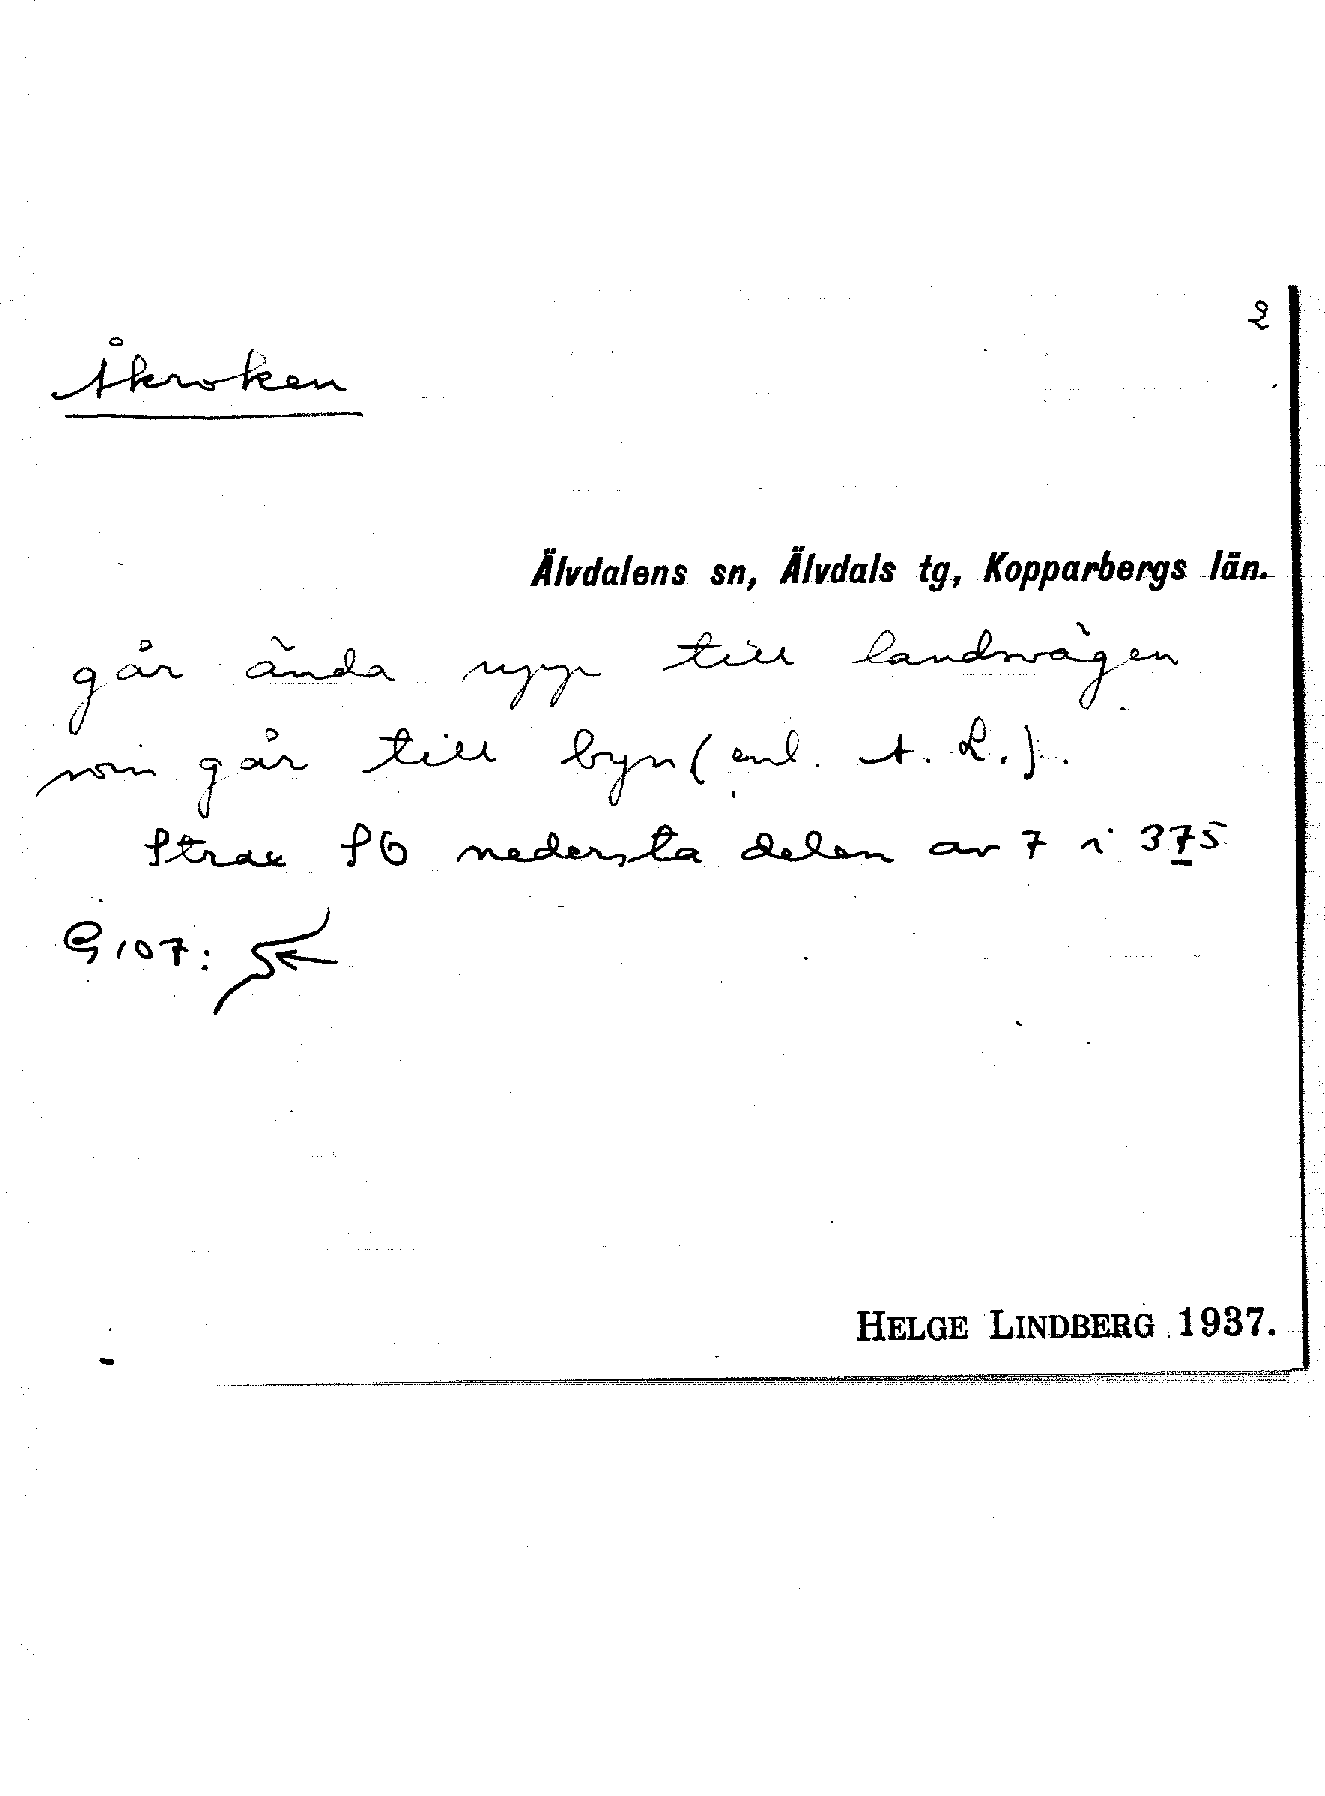 2
Åkroken
Älvdalens sn, Älvdals tg, Kopparbergs län.
går ända upp till landsvägen
som går till byn (enl. A. L.).
Strax SO nedersta delen av 7 i 375
G 107:
HELGE LINDBERG 1937.